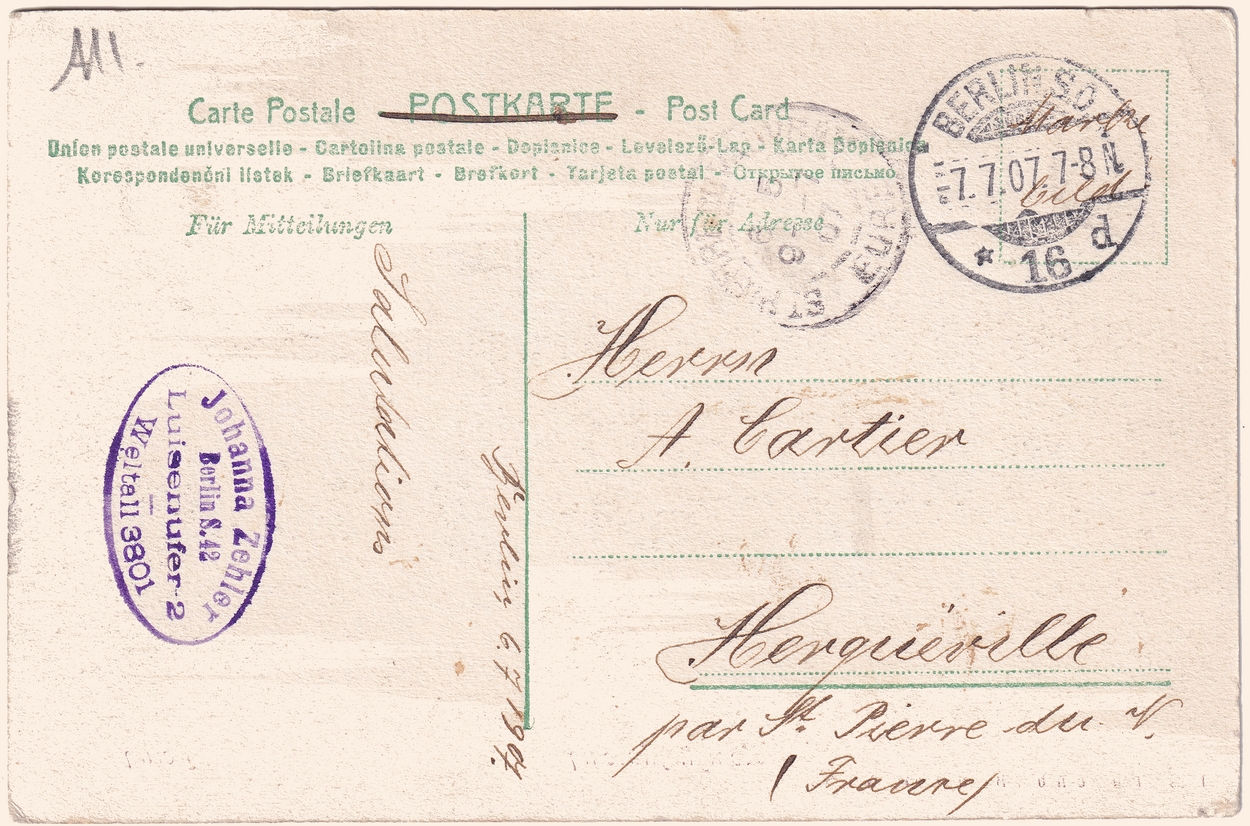 A11.
Carte Postale - POSTKARTE - Post Card
Union postale universelle - Cartolina postale - Dopisnice - Levelező-Lap - Karta Dopisnica
Korespondenční lístek - Briefkaart - Brefkort - Tarjeta postal - Открытое письмо
Für Mitteilungen
Nur für Adresse
BERLIN S.O.
7.7.07 7-8 N
* 16 d
Marke
bild
EURE
Herrn
A. Cartier
Herquéville
par St. Pierre du V.
(France)
Salutations
Berlin 6.7.1907.
Johanna Zehler
Berlin S.42
Luisenufer 2
Weltall 3801